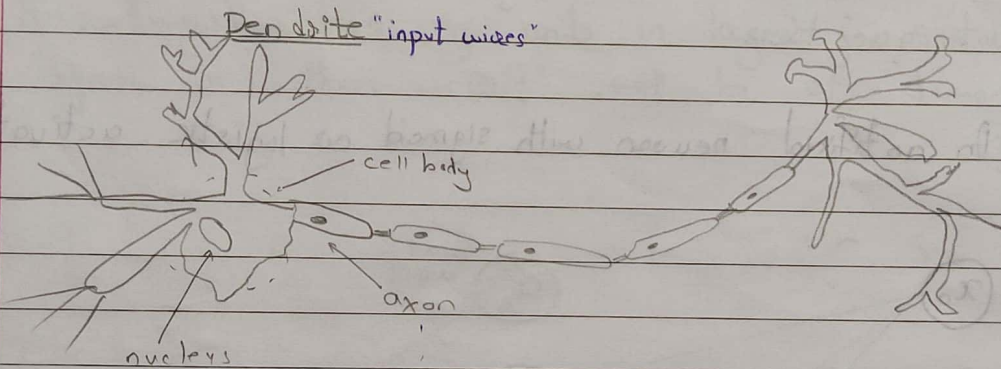 Dendrite "input wires"
cell body
axon
nucleys